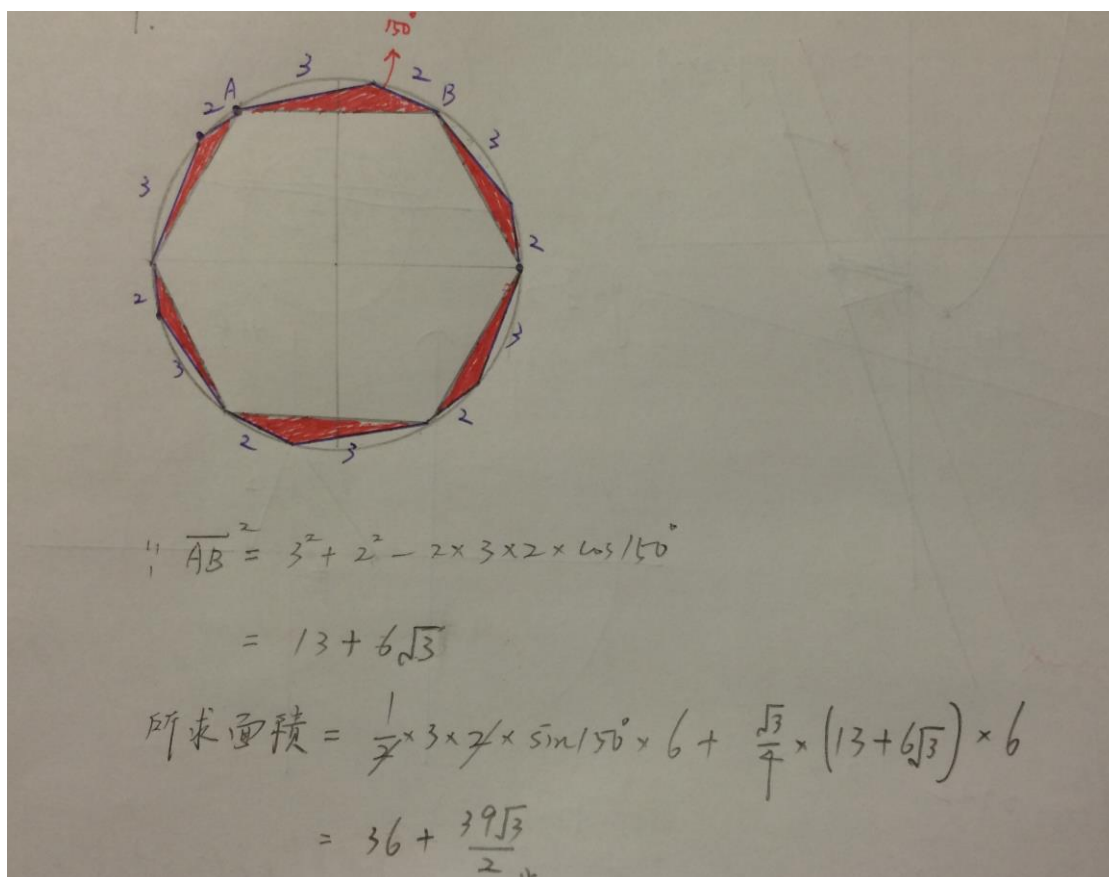 1.
150°
3
2
A
B
2
3
3
2
2
3
3
2
2
3
∵ \overline{AB}^2 = 3^2 + 2^2 - 2 × 3 × 2 × cos150°
= 13 + 6√3
所求面積 = 1/2 × 3 × 2 × sin150° × 6 + √3/4 × (13 + 6√3) × 6
= 36 + 39√3/2